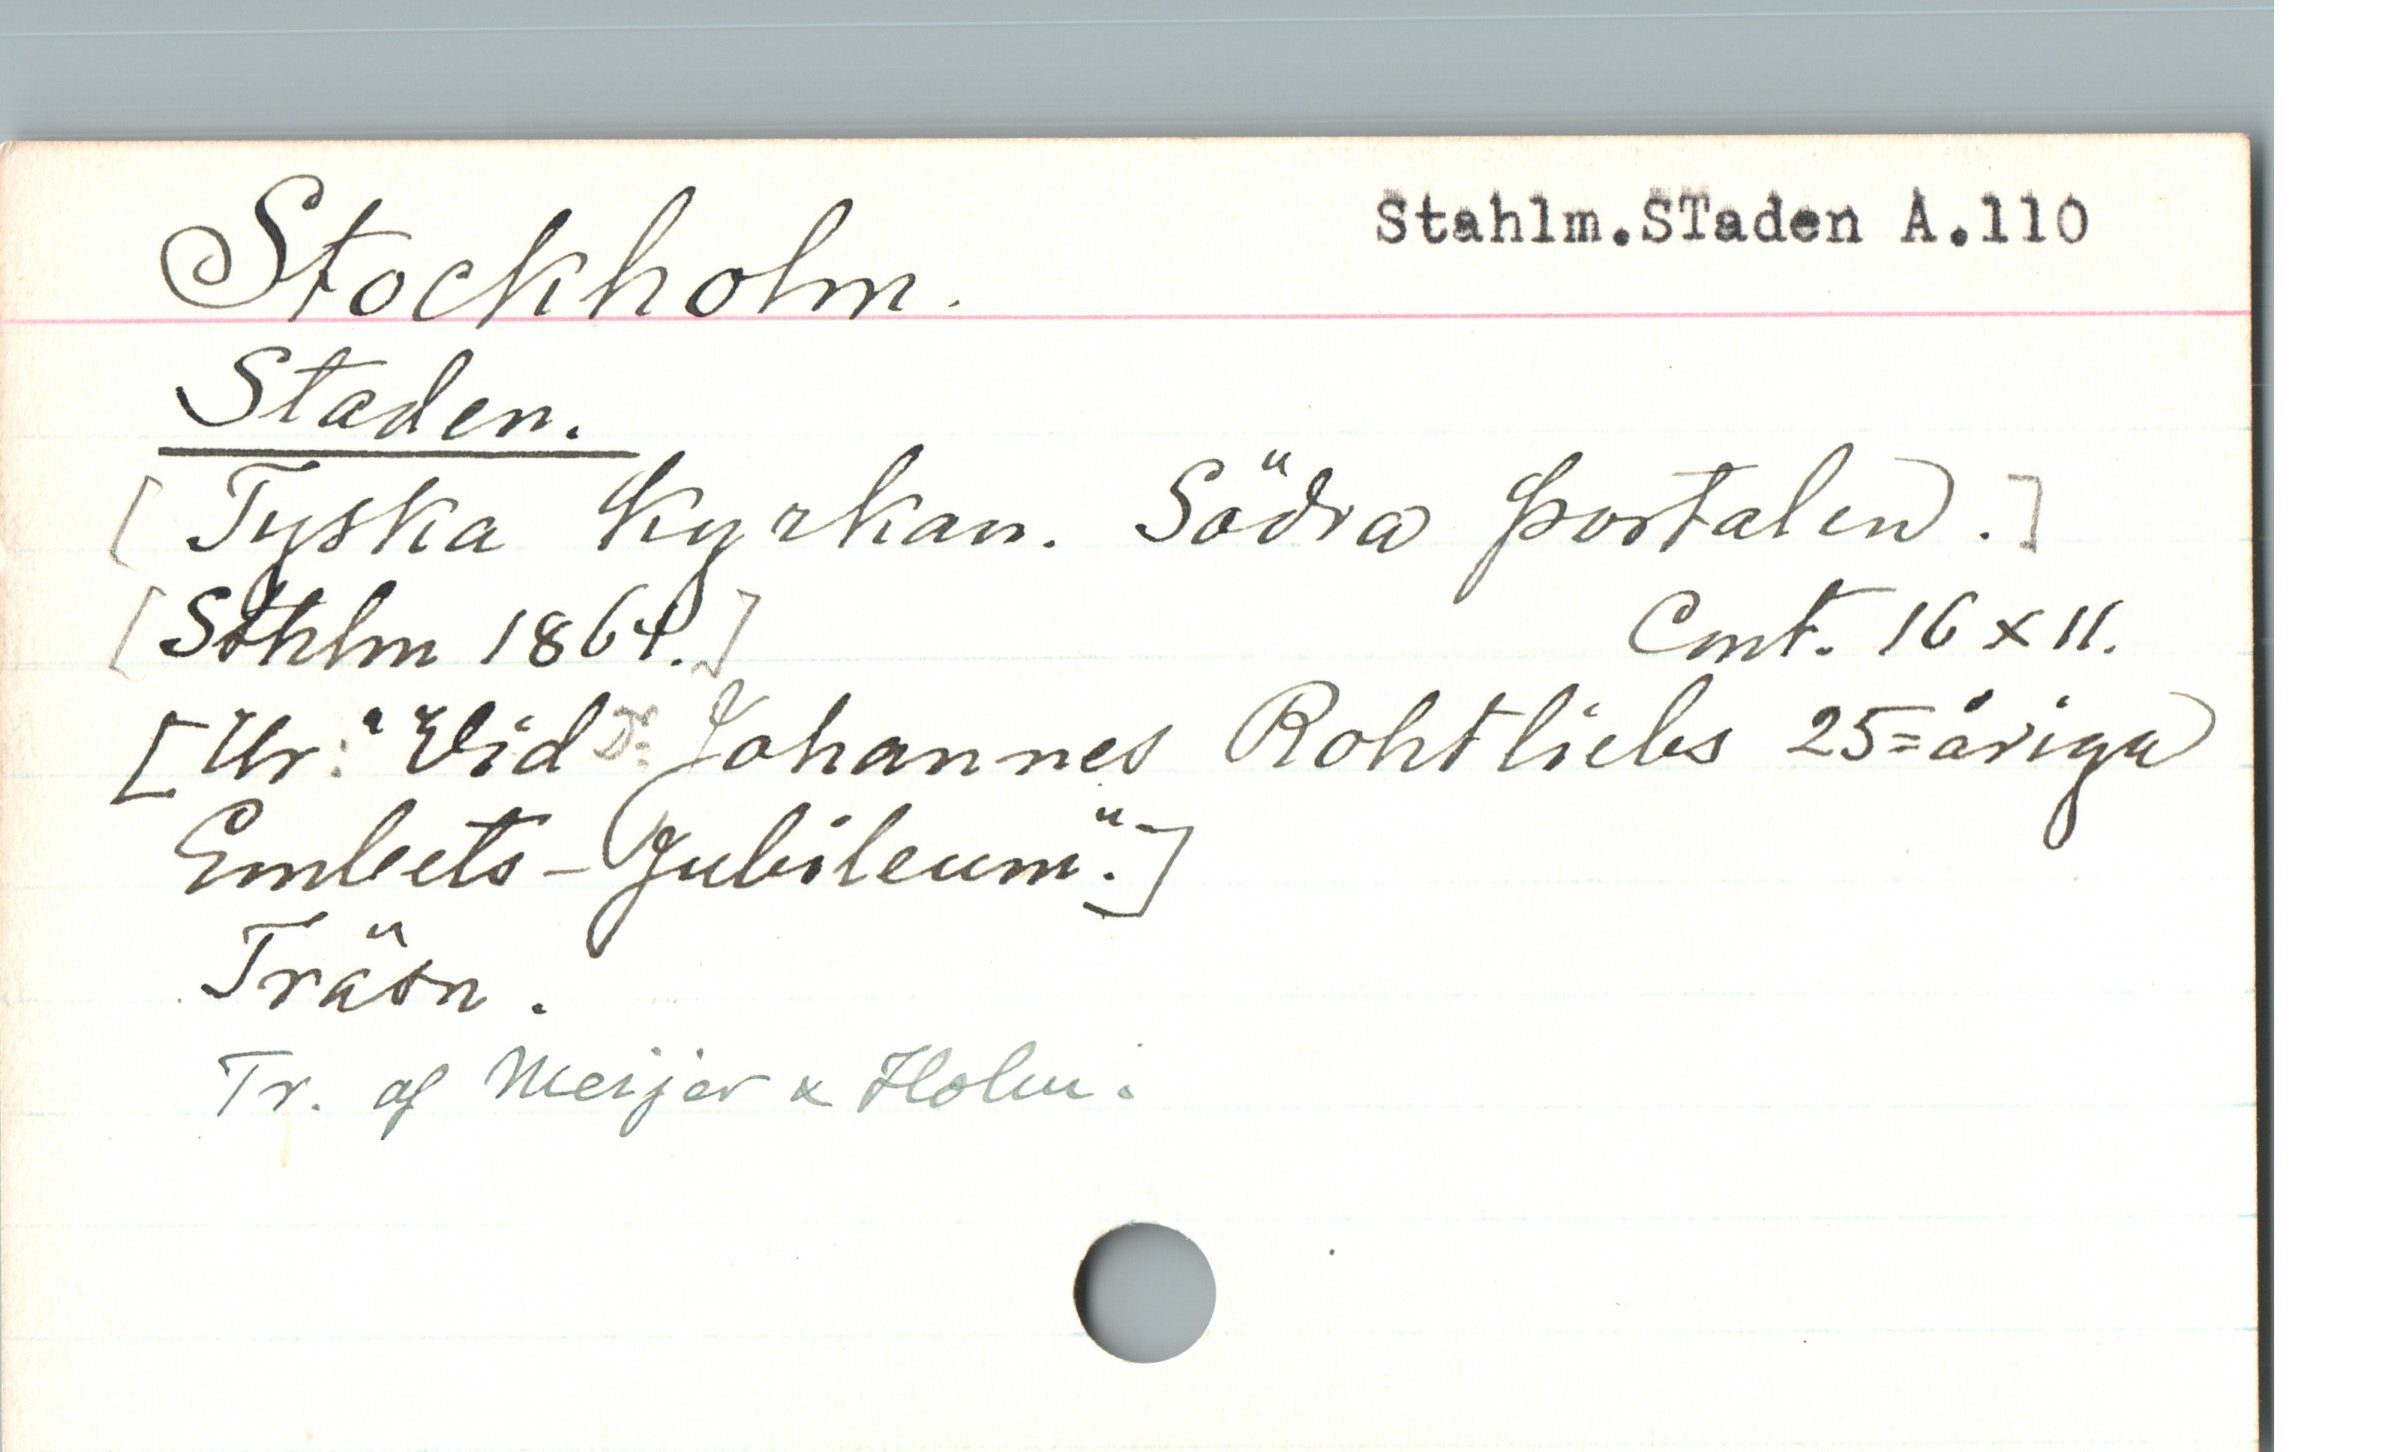 Stahlm.STaden A.110
Stockholm.
Staden.
[Tyska Kyrkan. Södra portalen.]
[Sthlm 1864.] Cmt. 16 x 11.
[Ur: "Vid Dr Johannes Rohtliebs 25=åriga
Embets-Jubileum".]
Träsn.
Tr. af Meijer & Holm.